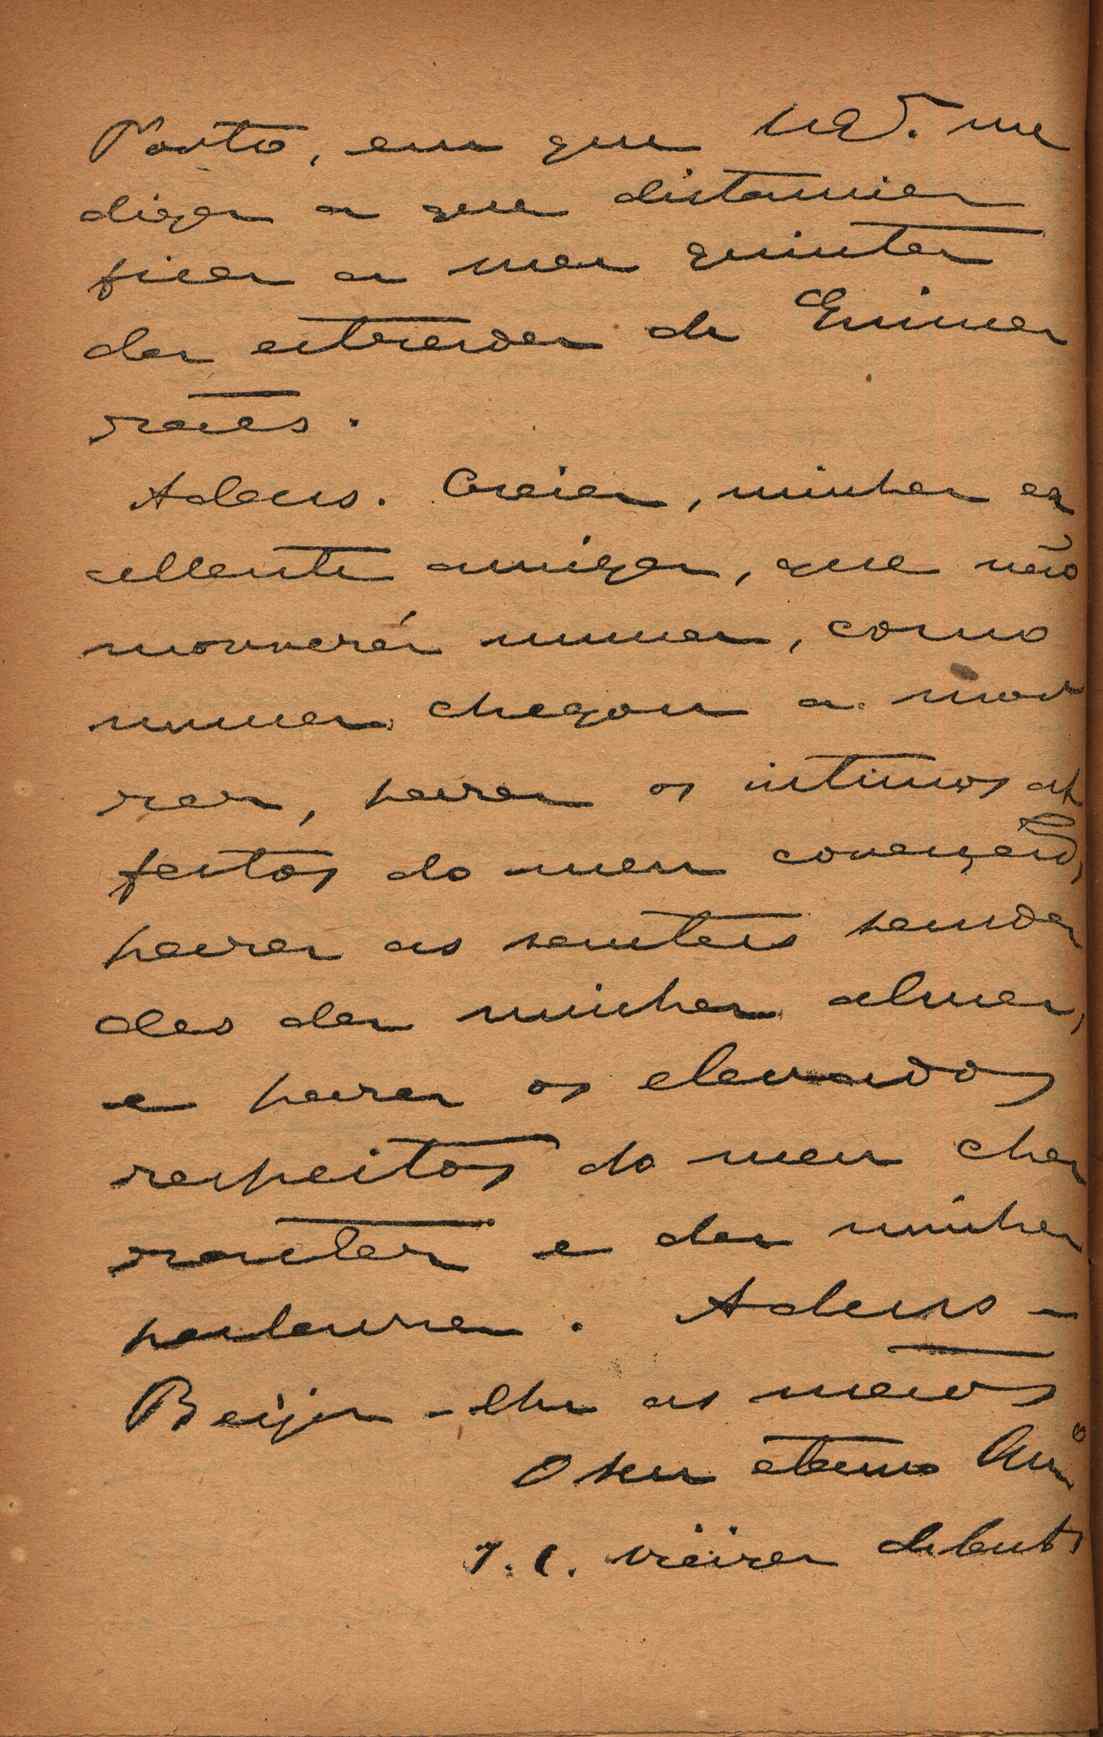 Porto, em que V. me
diga a que distancia
fica a mea quinta
da estrada de Guima
rães.
Adeus. Creia, minha ex
cellente amiga, que não
morrerá nunca, como
nunca chegou a mor
rer, para os intimos af
fectos do meu coração,
para as santas sauda
des da minha alma,
e para os elevados
respeitos do meu cha
racter e da minha
palavra. Adeus –
Beija-lhe as mãos
O seu eterno Am.º
J. C. Vieira de Castro